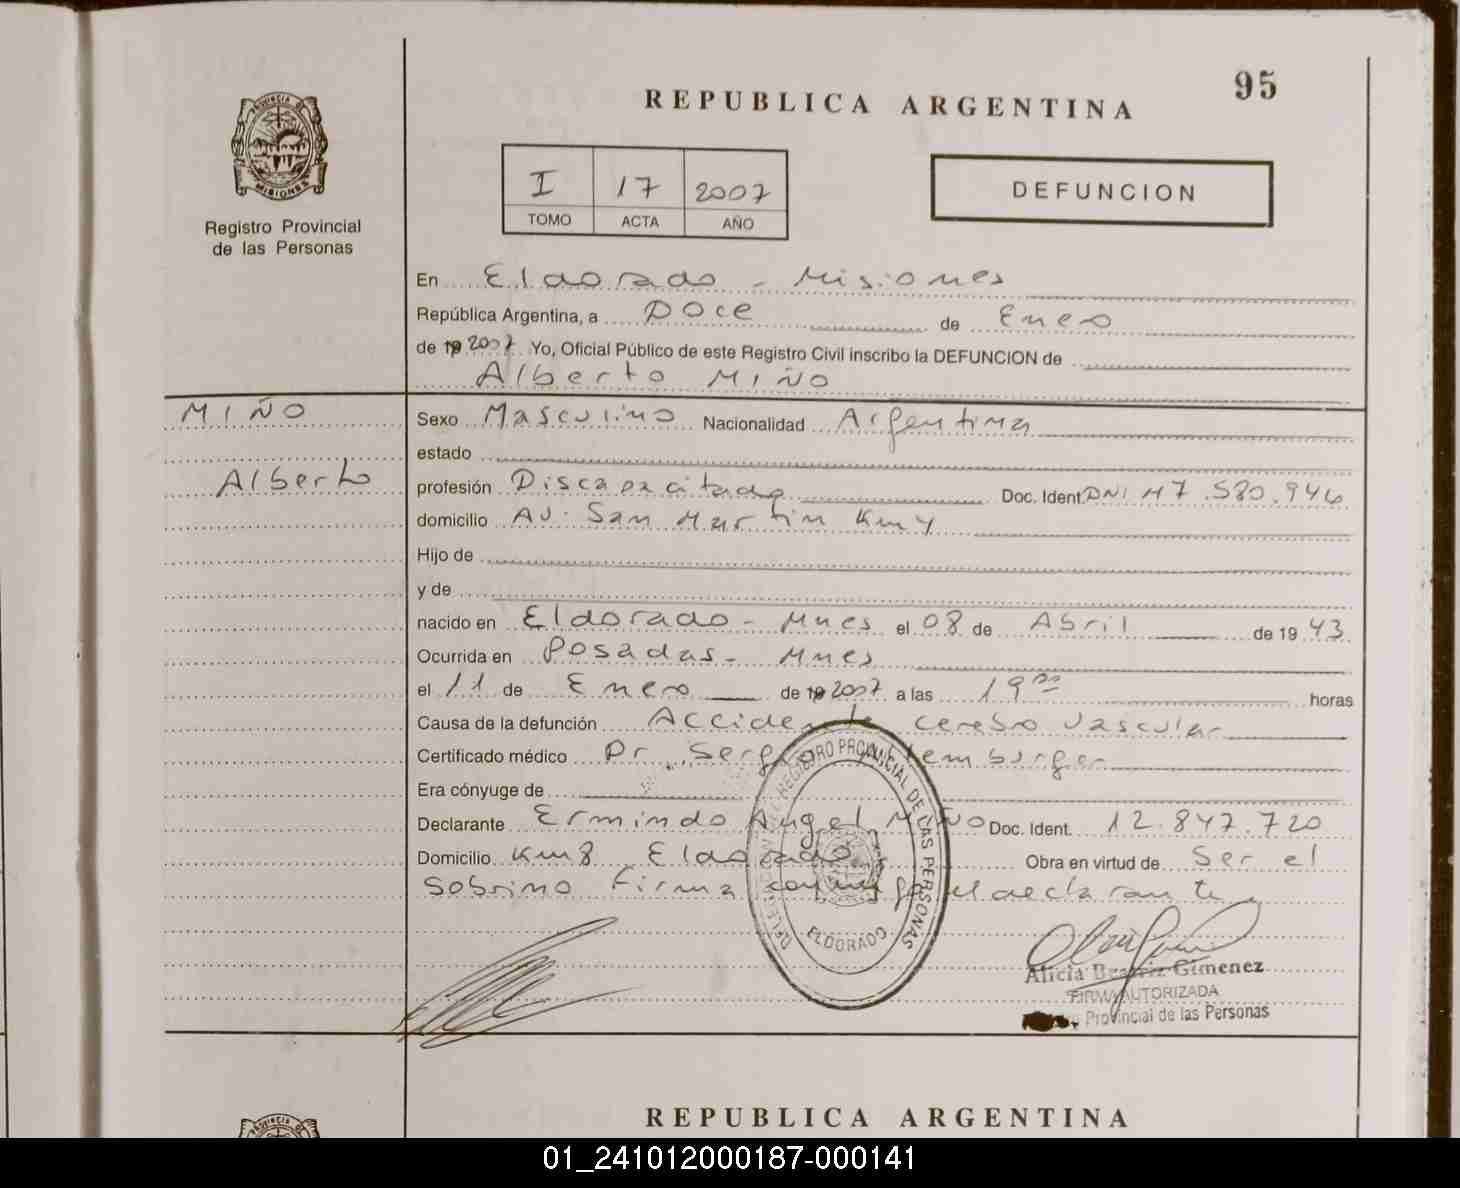 95
REPUBLICA ARGENTINA
PROVINCIA DE
MISIONES
Registro Provincial
de las Personas
I 17 2007
TOMO ACTA AÑO
DEFUNCION
En Eldorado - Misiones
República Argentina, a Doce de Enero
de 19 2007 Yo, Oficial Público de este Registro Civil inscribo la DEFUNCION de
Alberto MIÑO
MIÑO
Alberto
Sexo Masculino Nacionalidad Argentina
estado
profesión Discapacitado Doc. Ident. DNI M7.580.946
domicilio Av. San Martin Km 4
Hijo de
y de
nacido en Eldorado - Mnes el 08 de Abril de 1943
Ocurrida en Posadas - Mnes
el 11 de Enero de 19 2007 a las 19 00 horas
Causa de la defunción Accidente cerebro vascular
Certificado médico Dr. Sergio
Era cónyuge de
Declarante Ermindo Angel MIÑO Doc. Ident. 12.847.720
Domicilio Km 8 Eldorado Obra en virtud de Ser el
Sobrino Firma conmigo el declarante
REGISTRO PROVINCIAL DE LAS PERSONAS
ELDORADO
Alicia Beatriz Gimenez
FIRMA AUTORIZADA
Provincial de las Personas
REPUBLICA ARGENTINA
PROVINCIA DE
01_241012000187-000141